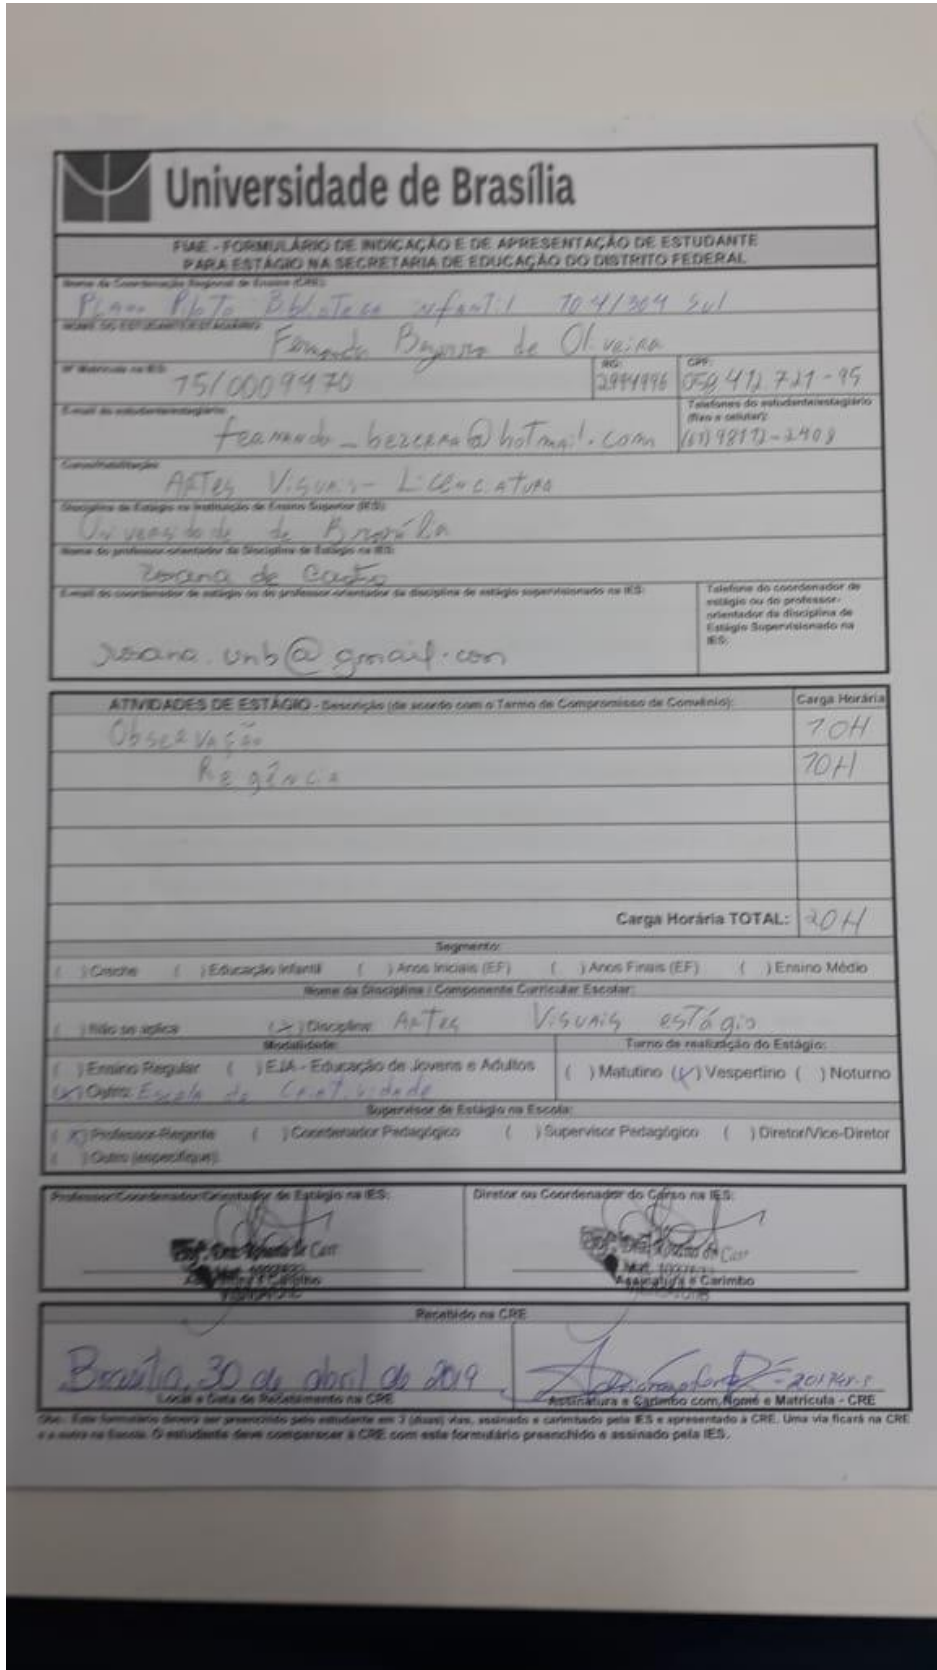 Universidade de Brasília
FIAE - FORMULÁRIO DE INDICAÇÃO E DE APRESENTAÇÃO DE ESTUDANTE
PARA ESTÁGIO NA SECRETARIA DE EDUCAÇÃO DO DISTRITO FEDERAL
Nome da Coordenação Regional de Ensino (CRE):
Plano Piloto Biblioteca infantil 104/304 Sul
NOME DO ESTUDANTE/ESTAGIÁRIO:
Fernando de Oliveira
Nº Matrícula na IES: RG: CPF:
15/0009470 2994996 059 412 721-95
E-mail do estudante/estagiário: Telefones do estudante/estagiário
(fixo e celular):
fernando_bezerra@hotmail.com (61) 98172-2408
Curso/Habilitação:
Artes Visuais - Licenciatura
Disciplina de Estágio na Instituição de Ensino Superior (IES):
Universidade de Brasília
Nome do professor-orientador da Disciplina de Estágio na IES:
rosana de Castro
E-mail do coordenador de estágio ou do professor-orientador da disciplina de estágio supervisionado na IES: Telefone do coordenador de
estágio ou do professor-
orientador da disciplina de
Estágio Supervisionado na
IES:
rosana.unb@gmail.com
ATIVIDADES DE ESTÁGIO - Descrição (de acordo com o Termo de Compromisso de Convênio): Carga Horária
Observação 10H
Regência 10H
Carga Horária TOTAL: 20H
Segmento:
( ) Creche ( ) Educação Infantil ( ) Anos Iniciais (EF) ( ) Anos Finais (EF) ( ) Ensino Médio
Nome da Disciplina / Componente Curricular Escolar:
( ) Não se aplica (X) Disciplina: Artes Visuais estágio
Modalidade: Turno de realização do Estágio:
( ) Ensino Regular ( ) EJA - Educação de Jovens e Adultos ( ) Matutino (X) Vespertino ( ) Noturno
(X) Outro: Escola da Criatividade
Supervisor de Estágio na Escola:
(X) Professor-Regente ( ) Coordenador Pedagógico ( ) Supervisor Pedagógico ( ) Diretor/Vice-Diretor
( ) Outro (especifique):
Professor/Coordenador/Orientador de Estágio na IES: Diretor ou Coordenador do Curso na IES:
Assinatura e Carimbo Assinatura e Carimbo
Recebido na CRE
Brasília, 30 de abril de 2019
Local e Data de Recebimento na CRE Assinatura e Carimbo com Nome e Matrícula - CRE
Obs.: Este formulário deverá ser preenchido pelo estudante em 2 (duas) vias, assinado e carimbado pela IES e apresentado à CRE. Uma via ficará na CRE
e a outra na Escola. O estudante deve comparecer à CRE com este formulário preenchido e assinado pela IES.